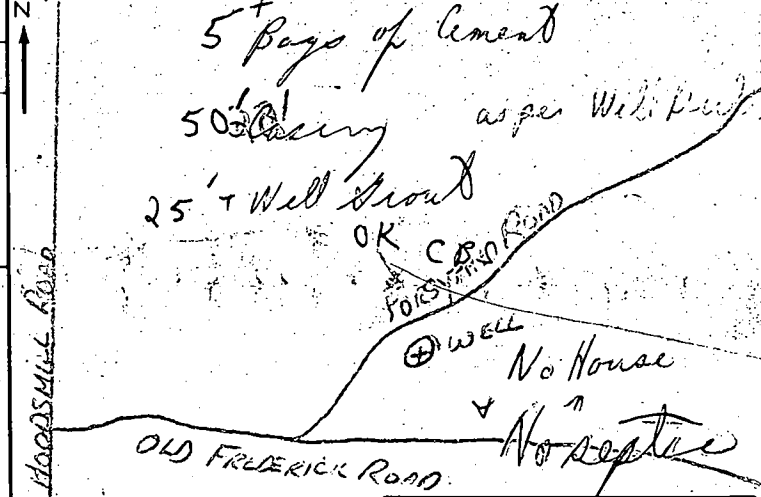 N
5+ Bags of Cement
50' Casing as per Well
25'+ Well Grout
OK
FORSYTHE ROAD
WELL
No House
No septic
HOODSMILL ROAD
OLD FREDERICK ROAD